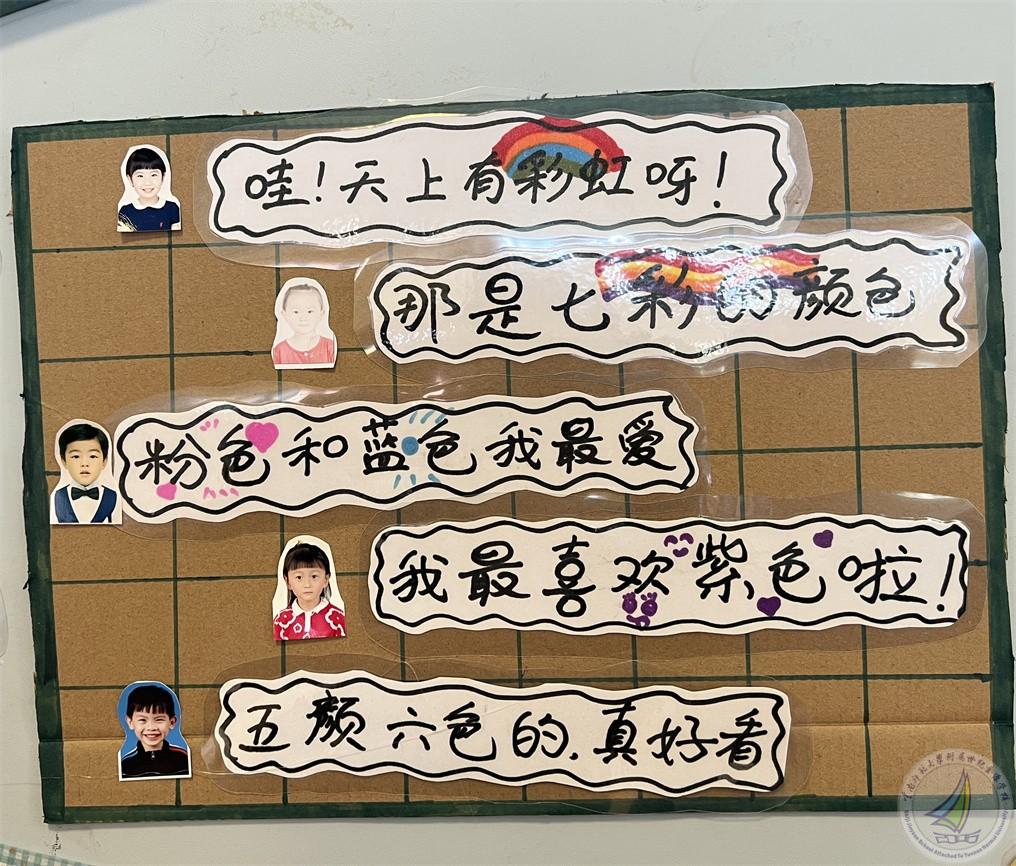 哇!天上有彩虹呀!
那是七彩的颜色
粉色和蓝色我最爱
我最喜欢紫色啦!
五颜六色的.真好看